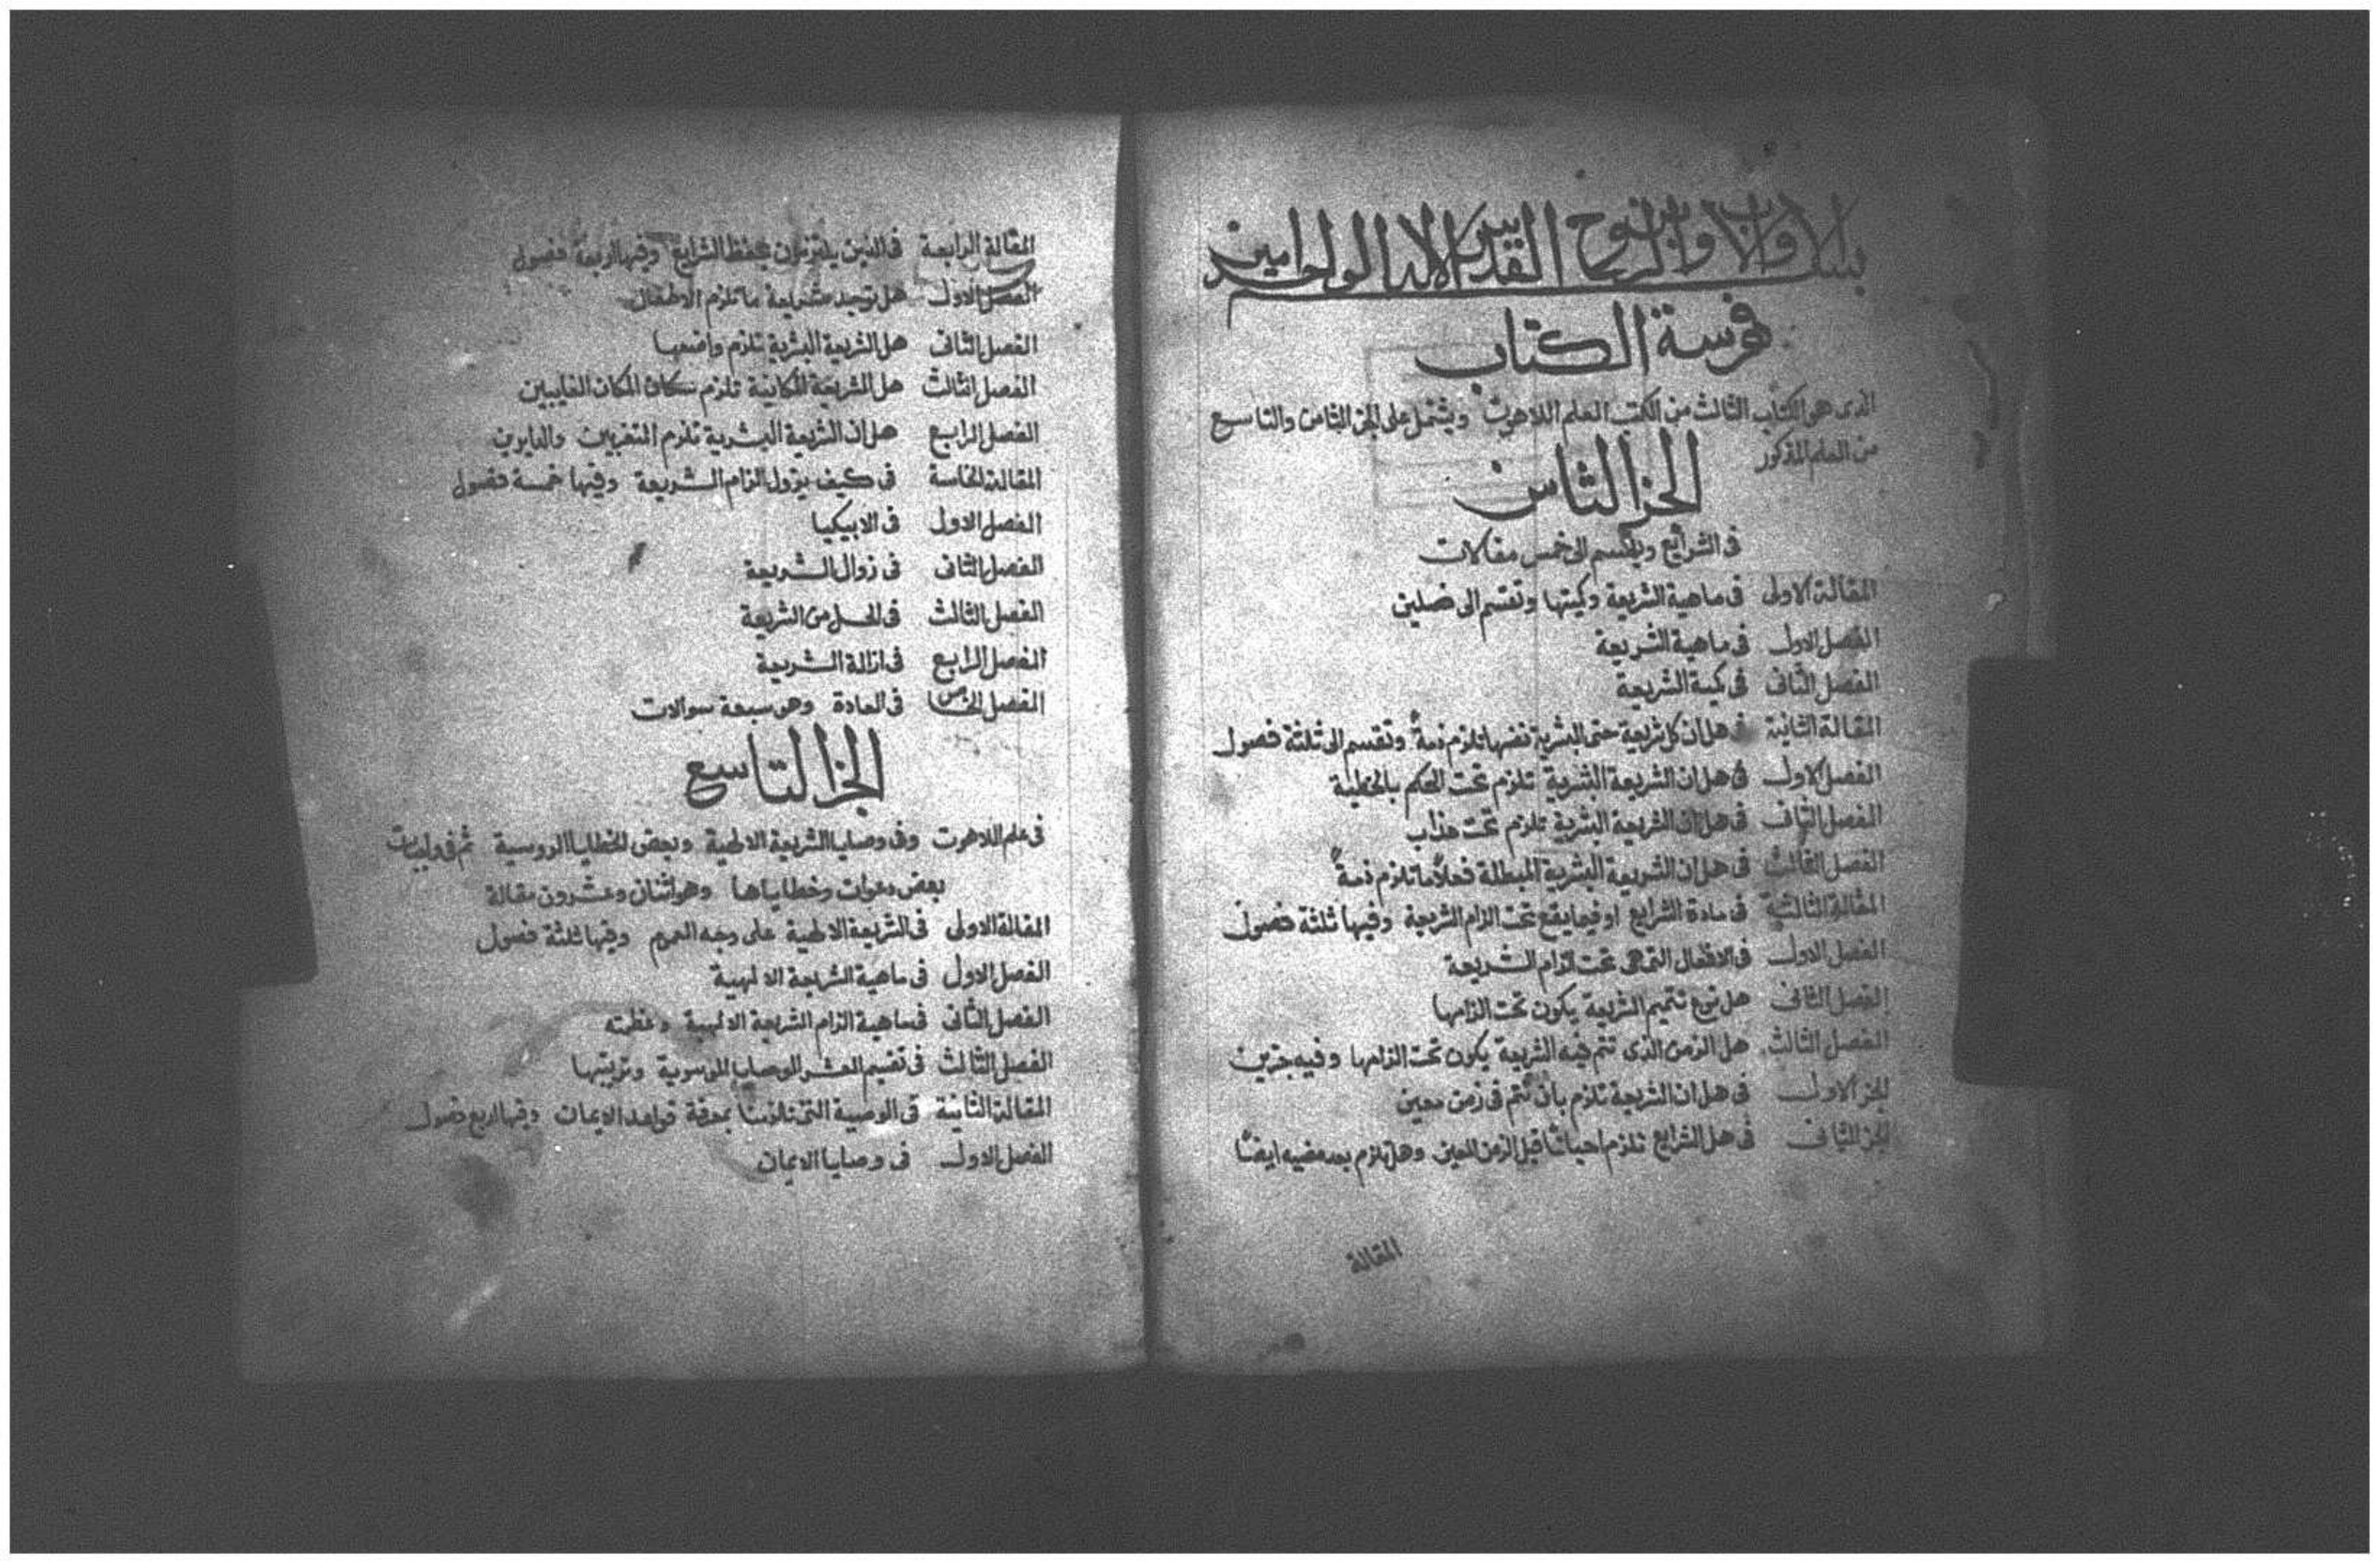 بسم الاب والابن والروح القدس الاله الواحد امين
فهرسة الكتاب
الذى هو الكتاب الثالث من الكتب العلم اللاهوت ويشتمل على الجز الثامن والتاسع
من العلم المذكور
الجز الثامن
فى الشرايع وينقسم الى خمس مقالات
المقالة الاولى فى ماهية الشريعة وكميتها وتقسم الى فصلين
الفصل الاول فى ماهية الشريعة
الفصل الثانى فى كمية الشريعة
المقالة الثانية فى هل ان كل شريعة حتى البشرية نفسها تلزم ذمةً وتقسم الى ثلثة فصول
الفصل الاول فى هل ان الشريعة البشرية تلزم تحت الحكم بالخطية
الفصل الثانى فى هل ان الشريعة البشرية تلزم تحت عذاب
الفصل الثالث فى هل ان الشريعة البشرية المبطلة فعلاً ما تلزم ذمةً
المقالة الثالثة فى مادة الشرايع او فيما يقع تحت الزام الشريعة وفيها ثلثة فصول
الفصل الاول فى الافعال التى هى تحت الزام الشريعة
الفصل الثانى هل نوع تتميم الشريعة يكون تحت الزامها
الفصل الثالث هل الزمن الذى تتم فيه الشريعة يكون تحت الزامها وفيه جزين
الجز الاول فى هل ان الشريعة تلزم بان تتم فى زمن معين
الجز الثانى فى هل الشرايع تلزم احيانًا قبل الزمن المعين وهل تلزم بعد مضيه ايضًا
المقالة
المقالة الرابعة فى الذين يلتزمون بحفظ الشرايع وفيها اربعة فصول
الفصل الاول هل توجد شريعة ما تلزم الاطفال
الفصل الثانى هل الشريعة البشرية تلزم واضعها
الفصل الثالث هل الشريعة المكانية تلزم سكان المكان الغايبين
الفصل الرابع هل ان الشريعة البشرية تلزم المتغربين والدايرين
المقالة الخامسة فى كيف يزول الزام الشريعة وفيها خمسة فصول
الفصل الاول فى الابيكيا
الفصل الثانى فى زوال الشريعة
الفصل الثالث فى الحل من الشريعة
الفصل الرابع فى ازالة الشريعة
الفصل الخامس فى العادة وهو سبعة سوالات
الجز التاسع
فى علم اللاهوت وفى وصايا الشريعة الالهية وبعض الخطايا الروسية ثم فى واجبات
بعض دعوات وخطاياها وهو اثنان وعشرون مقالة
المقالة الاولى فى الشريعة الالهية على وجه العموم وفيها ثلثة فصول
الفصل الاول فى ماهية الشريعة الالهية
الفصل الثانى فى ماهية الزام الشريعة الالهية وعظمته
الفصل الثالث فى تقسيم العشر الوصايا الموسوية وترتيبها
المقالة الثانية فى الوصية التى تلزمنا بمعرفة قواعد الايمان وفيها اربع فصول
الفصل الاول فى وصايا الايمان